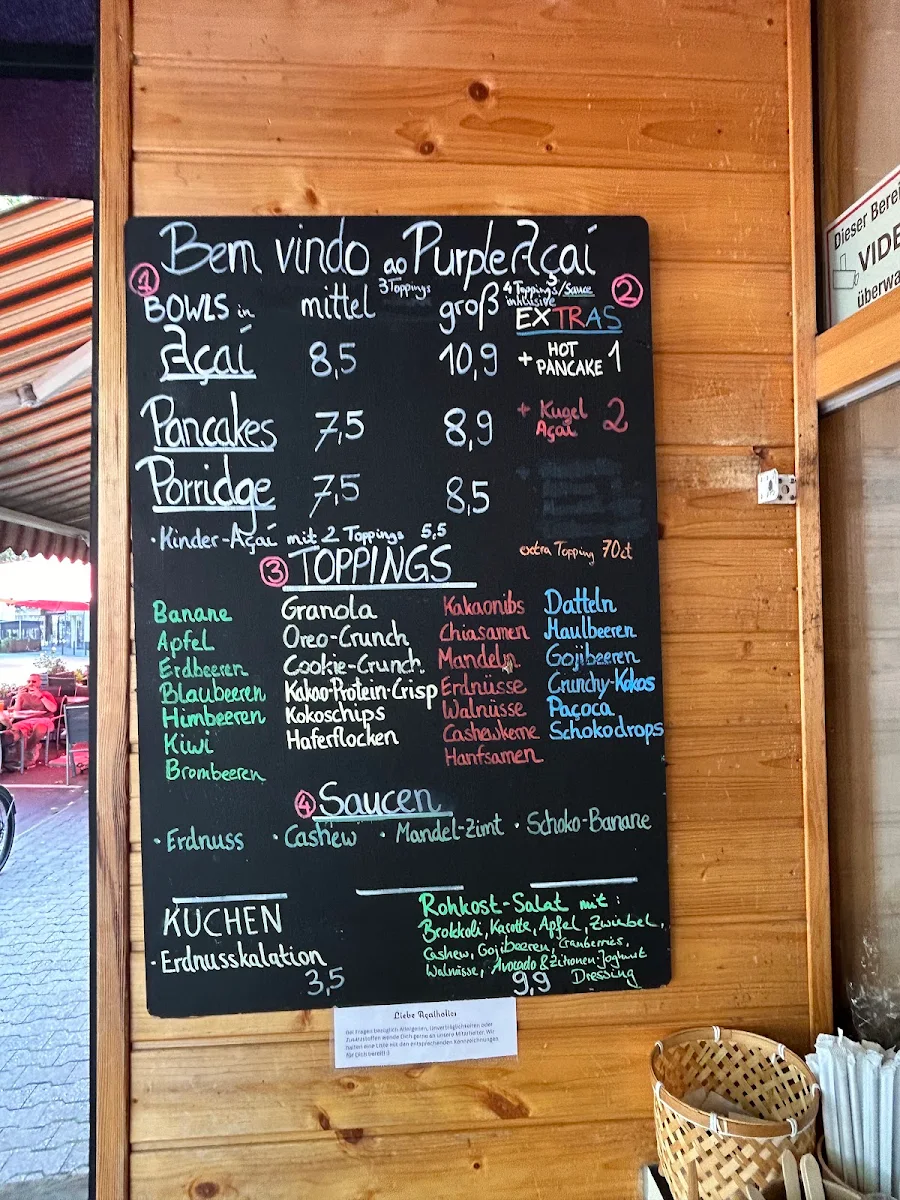 Bem vindo ao Purple Açaí
1 BOWLS in mittel 3 Toppings groß 4 Toppings/Sauce inklusive 2
EXTRAS
Açaí 8,5 10,9 + HOT PANCAKE 1
Pancakes 7,5 8,9 + Kugel Açaí 2
Porridge 7,5 8,5
· Kinder-Açaí mit 2 Toppings 5,5
extra Topping 70ct
3 TOPPINGS
Banane Granola Kakaonibs Datteln
Apfel Oreo-Crunch Chiasamen Maulbeeren
Erdbeeren Cookie-Crunch Mandeln Gojibeeren
Blaubeeren Kakao-Protein-Crisp Erdnüsse Crunchy-Kokos
Himbeeren Kokoschips Walnüsse Paçoca
Kiwi Haferflocken Cashewkerne Schokodrops
Brombeeren Hanfsamen
4 Saucen
· Erdnuss · Cashew · Mandel-Zimt · Schoko-Banane
KUCHEN
· Erdnusskalation
3,5
Rohkost-Salat mit:
Brokkoli, Karotte, Apfel, Zwiebel,
Cashew, Gojibeeren, Cranberries,
Walnüsse, Avocado & Zitronen-Joghurt
9,9 Dressing
Liebe Açaíholics
Bei Fragen bezüglich Allergenen, Unverträglichkeiten oder
Zusatzstoffen wende Dich gerne an unsere Mitarbeiter. Wir
halten eine Liste mit den entsprechenden Kennzeichnungen
für Dich bereit! :)
Dieser Berei
VIDE
überwa